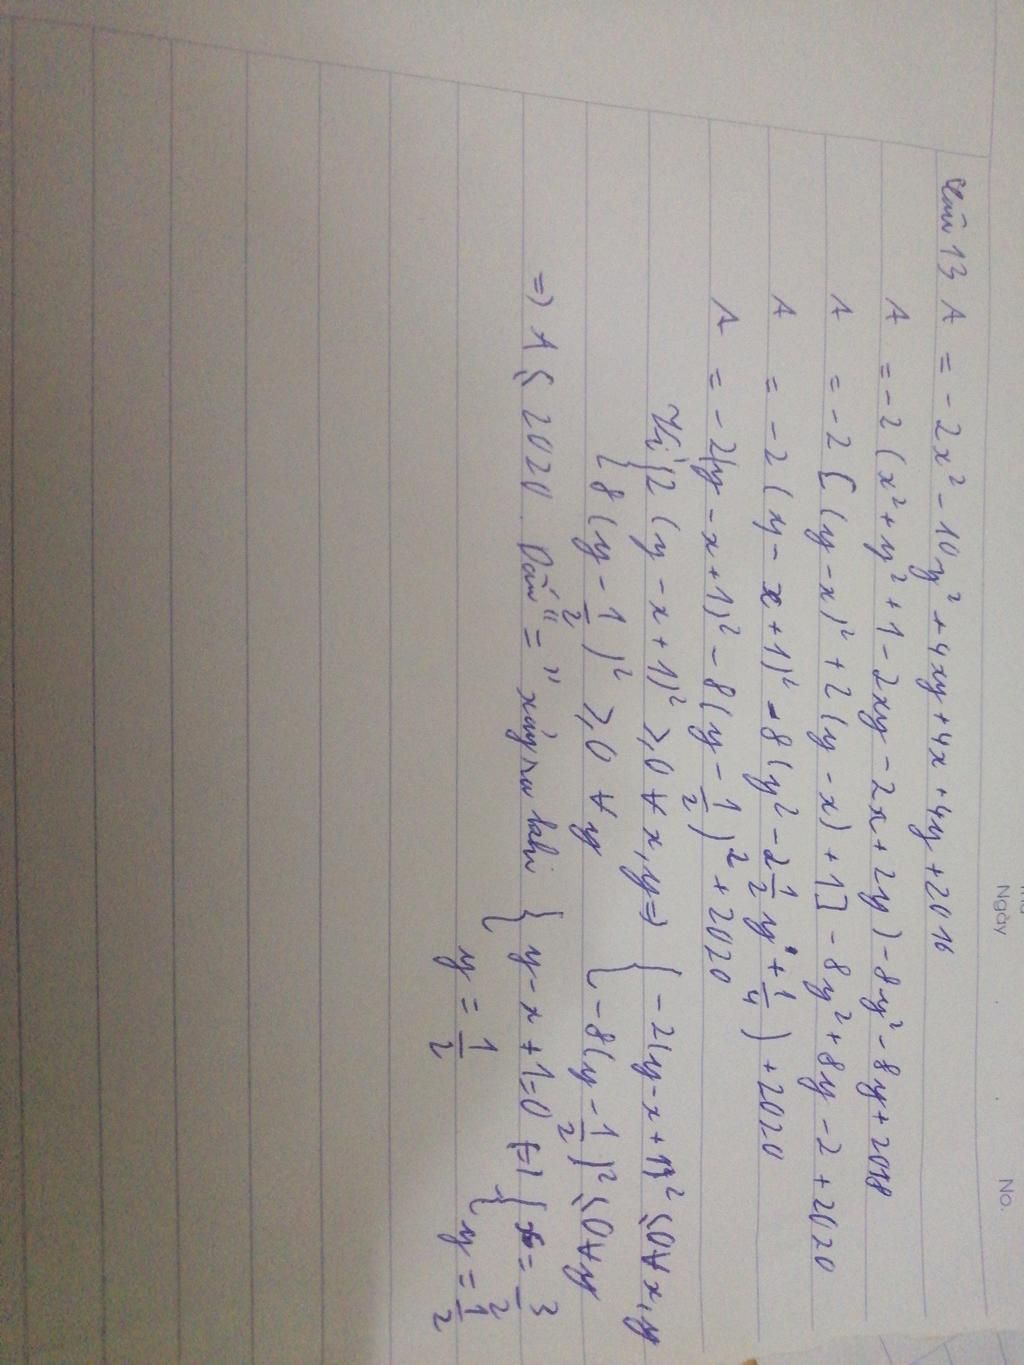 Ngày
No.
Câu 13 A = -2x² - 10y² + 4xy + 4x + 4y + 2016
A = -2(x² + y² + 1 - 2xy - 2x + 2y) - 8y² - 8y + 2018
A = -2[(y - x)² + 2(y - x) + 1] - 8y² + 8y - 2 + 2020
A = -2(y - x + 1)² - 8(y² - 2\frac{1}{2}y + \frac{1}{4}) + 2020
A = -2(y - x + 1)² - 8(y - \frac{1}{2})² + 2020
Vì { 2(y - x + 1)² ≥ 0 ∀ x, y ⇒ { -2(y - x + 1)² ≤ 0 ∀ x, y
8(y - \frac{1}{2})² ≥ 0 ∀ y { -8(y - \frac{1}{2})² ≤ 0 ∀ y
=> A ≤ 2020. Dấu "=" xảy ra khi { y - x + 1 = 0 (=) { x = \frac{3}{2}
y = \frac{1}{2} { y = \frac{1}{2}